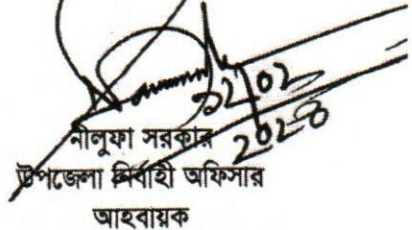 02/02
2028
নীলুফা সরকার
উপজেলা নির্বাহী অফিসার
আহবায়ক